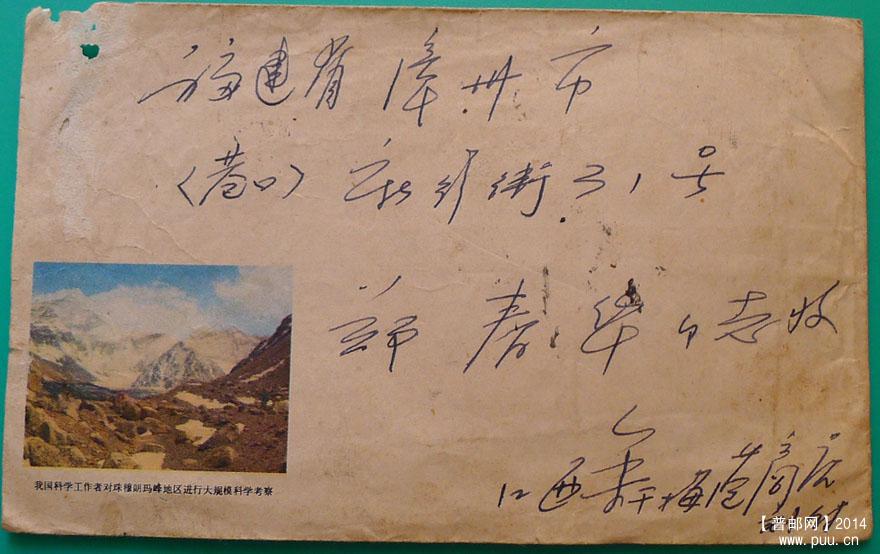 福建省漳州市
(巷口) 新行街31号
郑春华同志收
我国科学工作者对珠穆朗玛峰地区进行大规模科学考察
江西 商店
【普邮网】2014
www.puu.cn